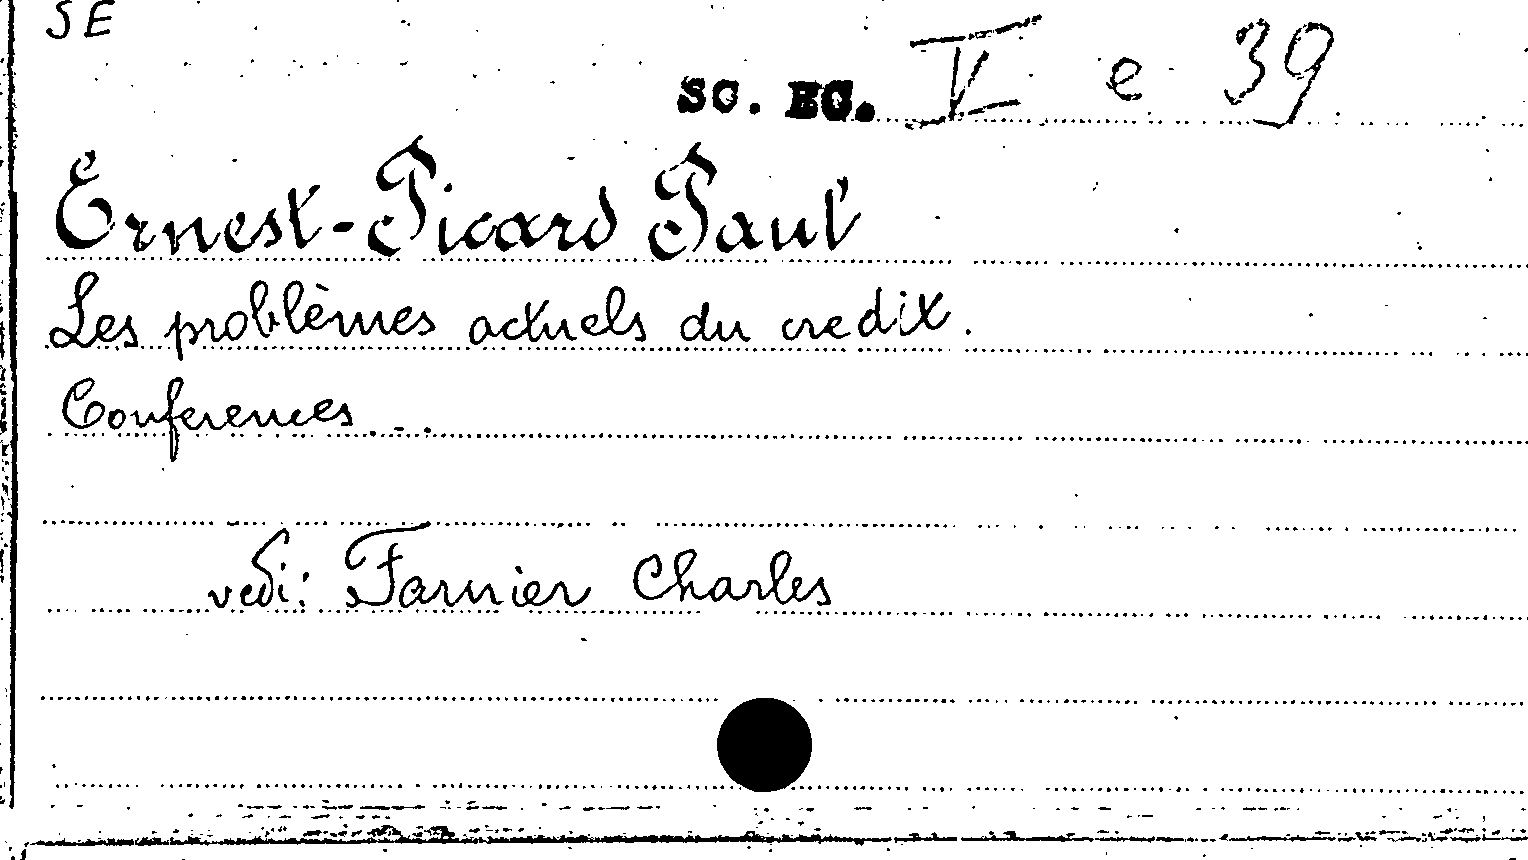 SE
SC. EC. V e 39
Ernest-Picard Paul
Les problèmes actuels du credit.
Conferences...
vedi: Farnier Charles